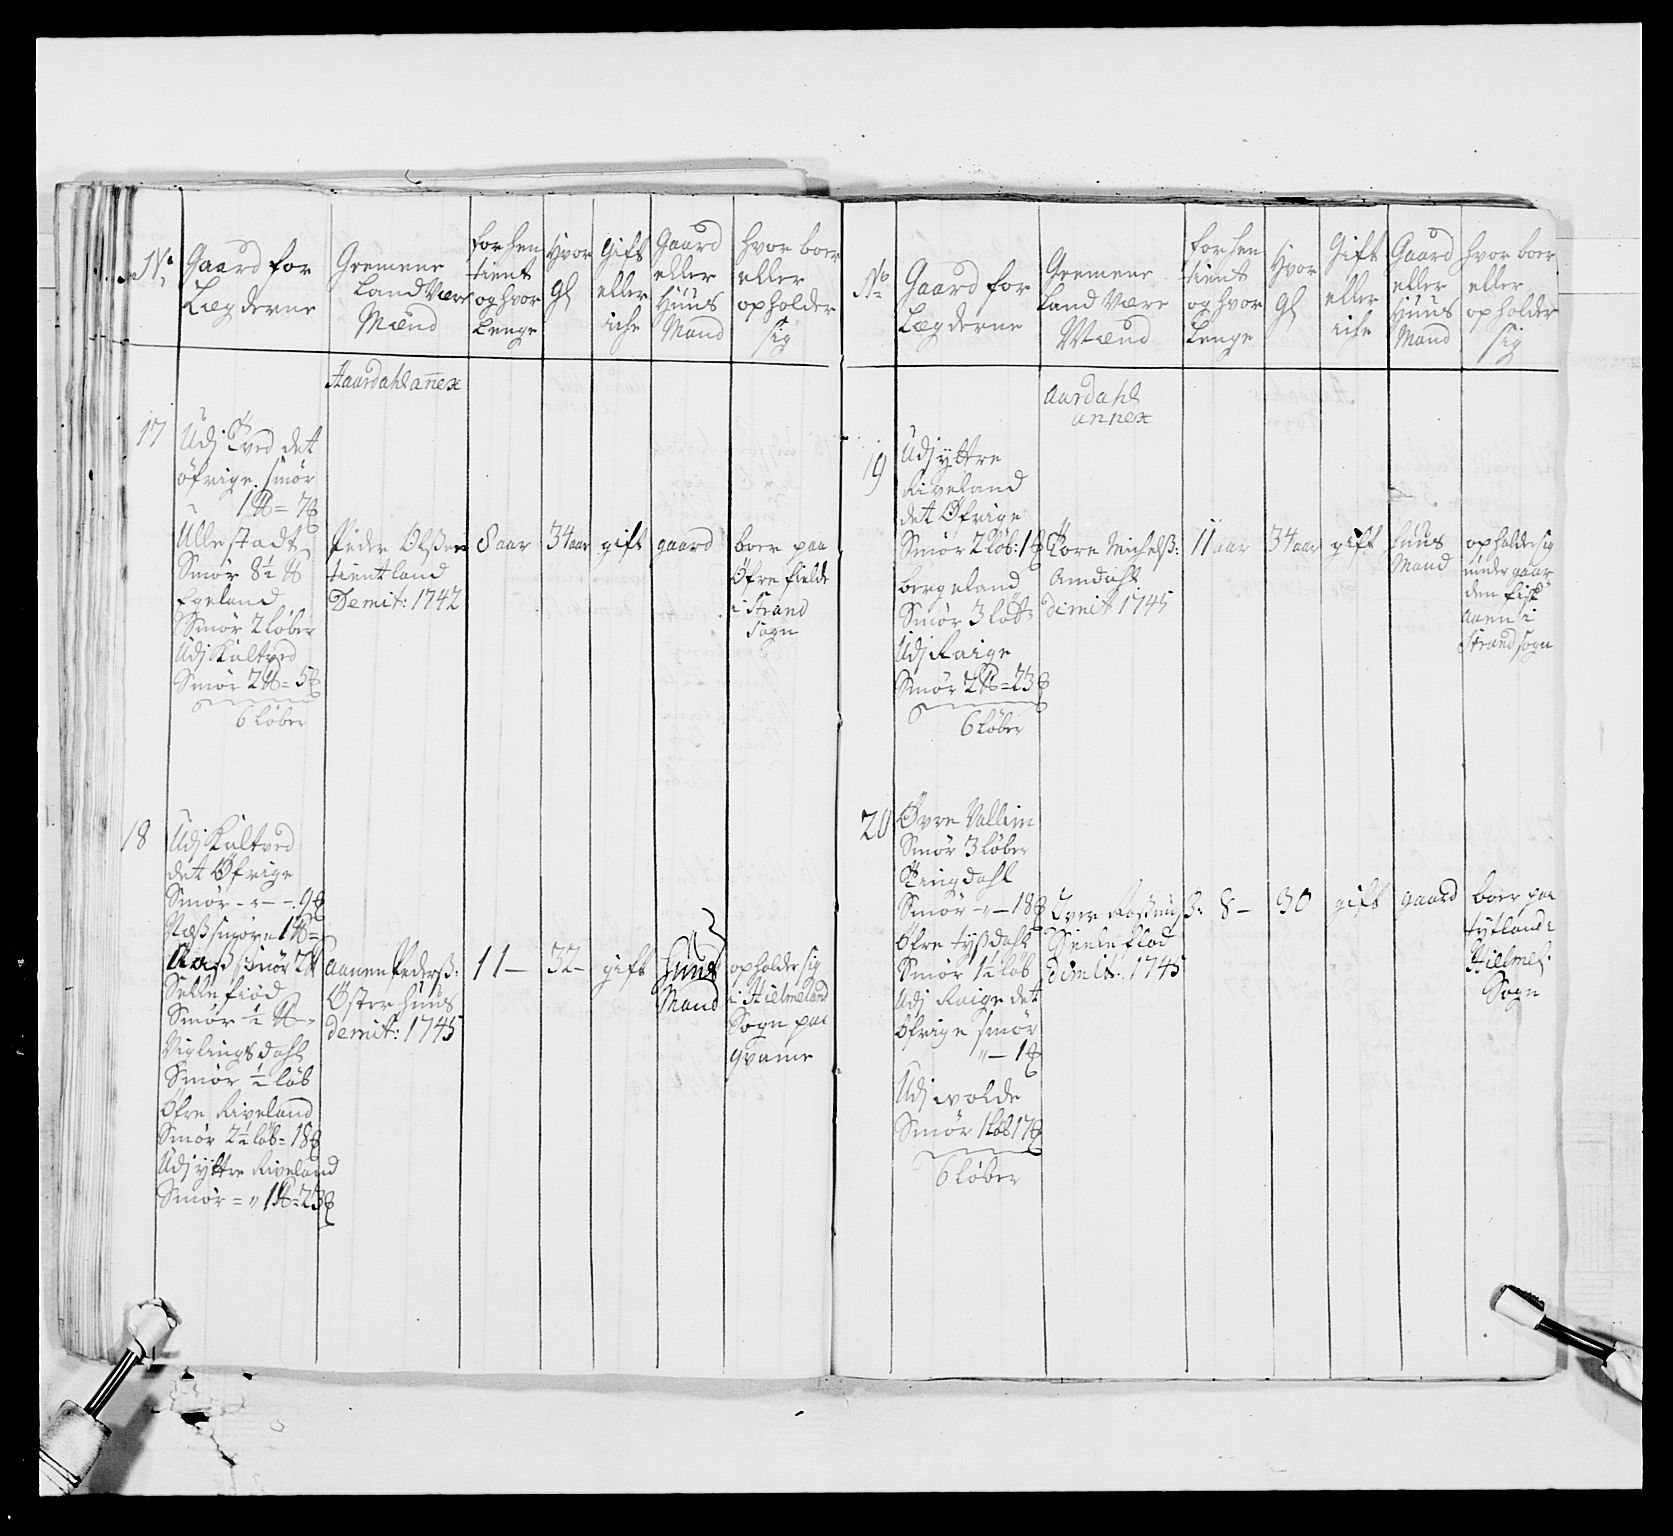 No
Gaard for
Lægderne
Gemene
Land Være
Mænd
forhen
tient
og hvor
Lenge
Hvor
gl
Gift
eller
iche
Gaard
eller
Huus
Mand
hvor boer
eller
opholder
sig
Aardahl anex
17
Udj Tved det
øfrige. smör
= 7
Ullestadt
Smör 8½
Egeland
Smör 2 løber
Udj Kaltved
Smör 2 = 5
6 Løber
Peder Olßen
tient land
Demit: 1742
8 aar
34 aar
gift
gaard
boer paa
Øfre fielde
i Strand
Sogn
18
Udj Kaltved
det Øfrige
Smör - " - - 9
Næß smör 1
smör 2
Selle fiød
Smör ½
Viglingsdahl
Smör ½ løb
Øfre Riveland
Smör 2½ løb = 18
Udj yttre Riveland
Smör = " 1 = 23
Aanen Pederß:
Østerhuus
demit: 1745
11 —
32 -
gift
huus
Mand
opholder sig
i Hielmeland
Sogn paa
qvame
No
Gaard for
Lægderne
Gemene
Land Være
Mænd
forhen
tient
og hvor
Lenge
Hvor
gl
Gift
eller
iche
Gaard
eller
Huus
Mand
hvor boer
eller
opholder
sig
Aardahl
annex
19
Udj yttre
Riveland
det Øfrige
Smör 2 løb: 1
bergeland
Smör 3 løb
Udj Raige
Smör 2 = 23
6 Løber
Tore Michelß:
Amdahl
dimit 1745
11 aar
34 aar
gift
huus
Mand
opholder sig
under gaar
den
aaen i
Strand sogn
20
Øvre Vallim
Smör 3 Løber
Tingdahl
Smör - " - 18
Øfre tyßdahl
Smör 1½ løb
Udj Raige det
Øfrige smör
" — 1
Udj volde
Smör 1 løb 17
6 Løber
Iver Raßmuß:
demit: 1745
8 —
30
gift
gaard
boer paa
tytland i
Hielmel:
Sogn